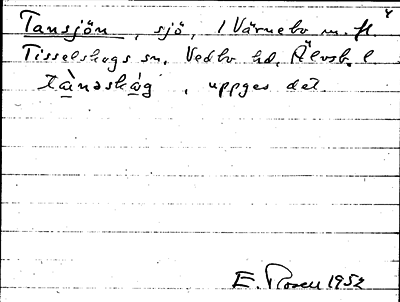 4
Tansjön, sjö, 1 Värnebo m. fl
Tisselskogs sn, Vedbo hd, Älvsb. l
tànəskåg, uppges det
E. Rosell 1952